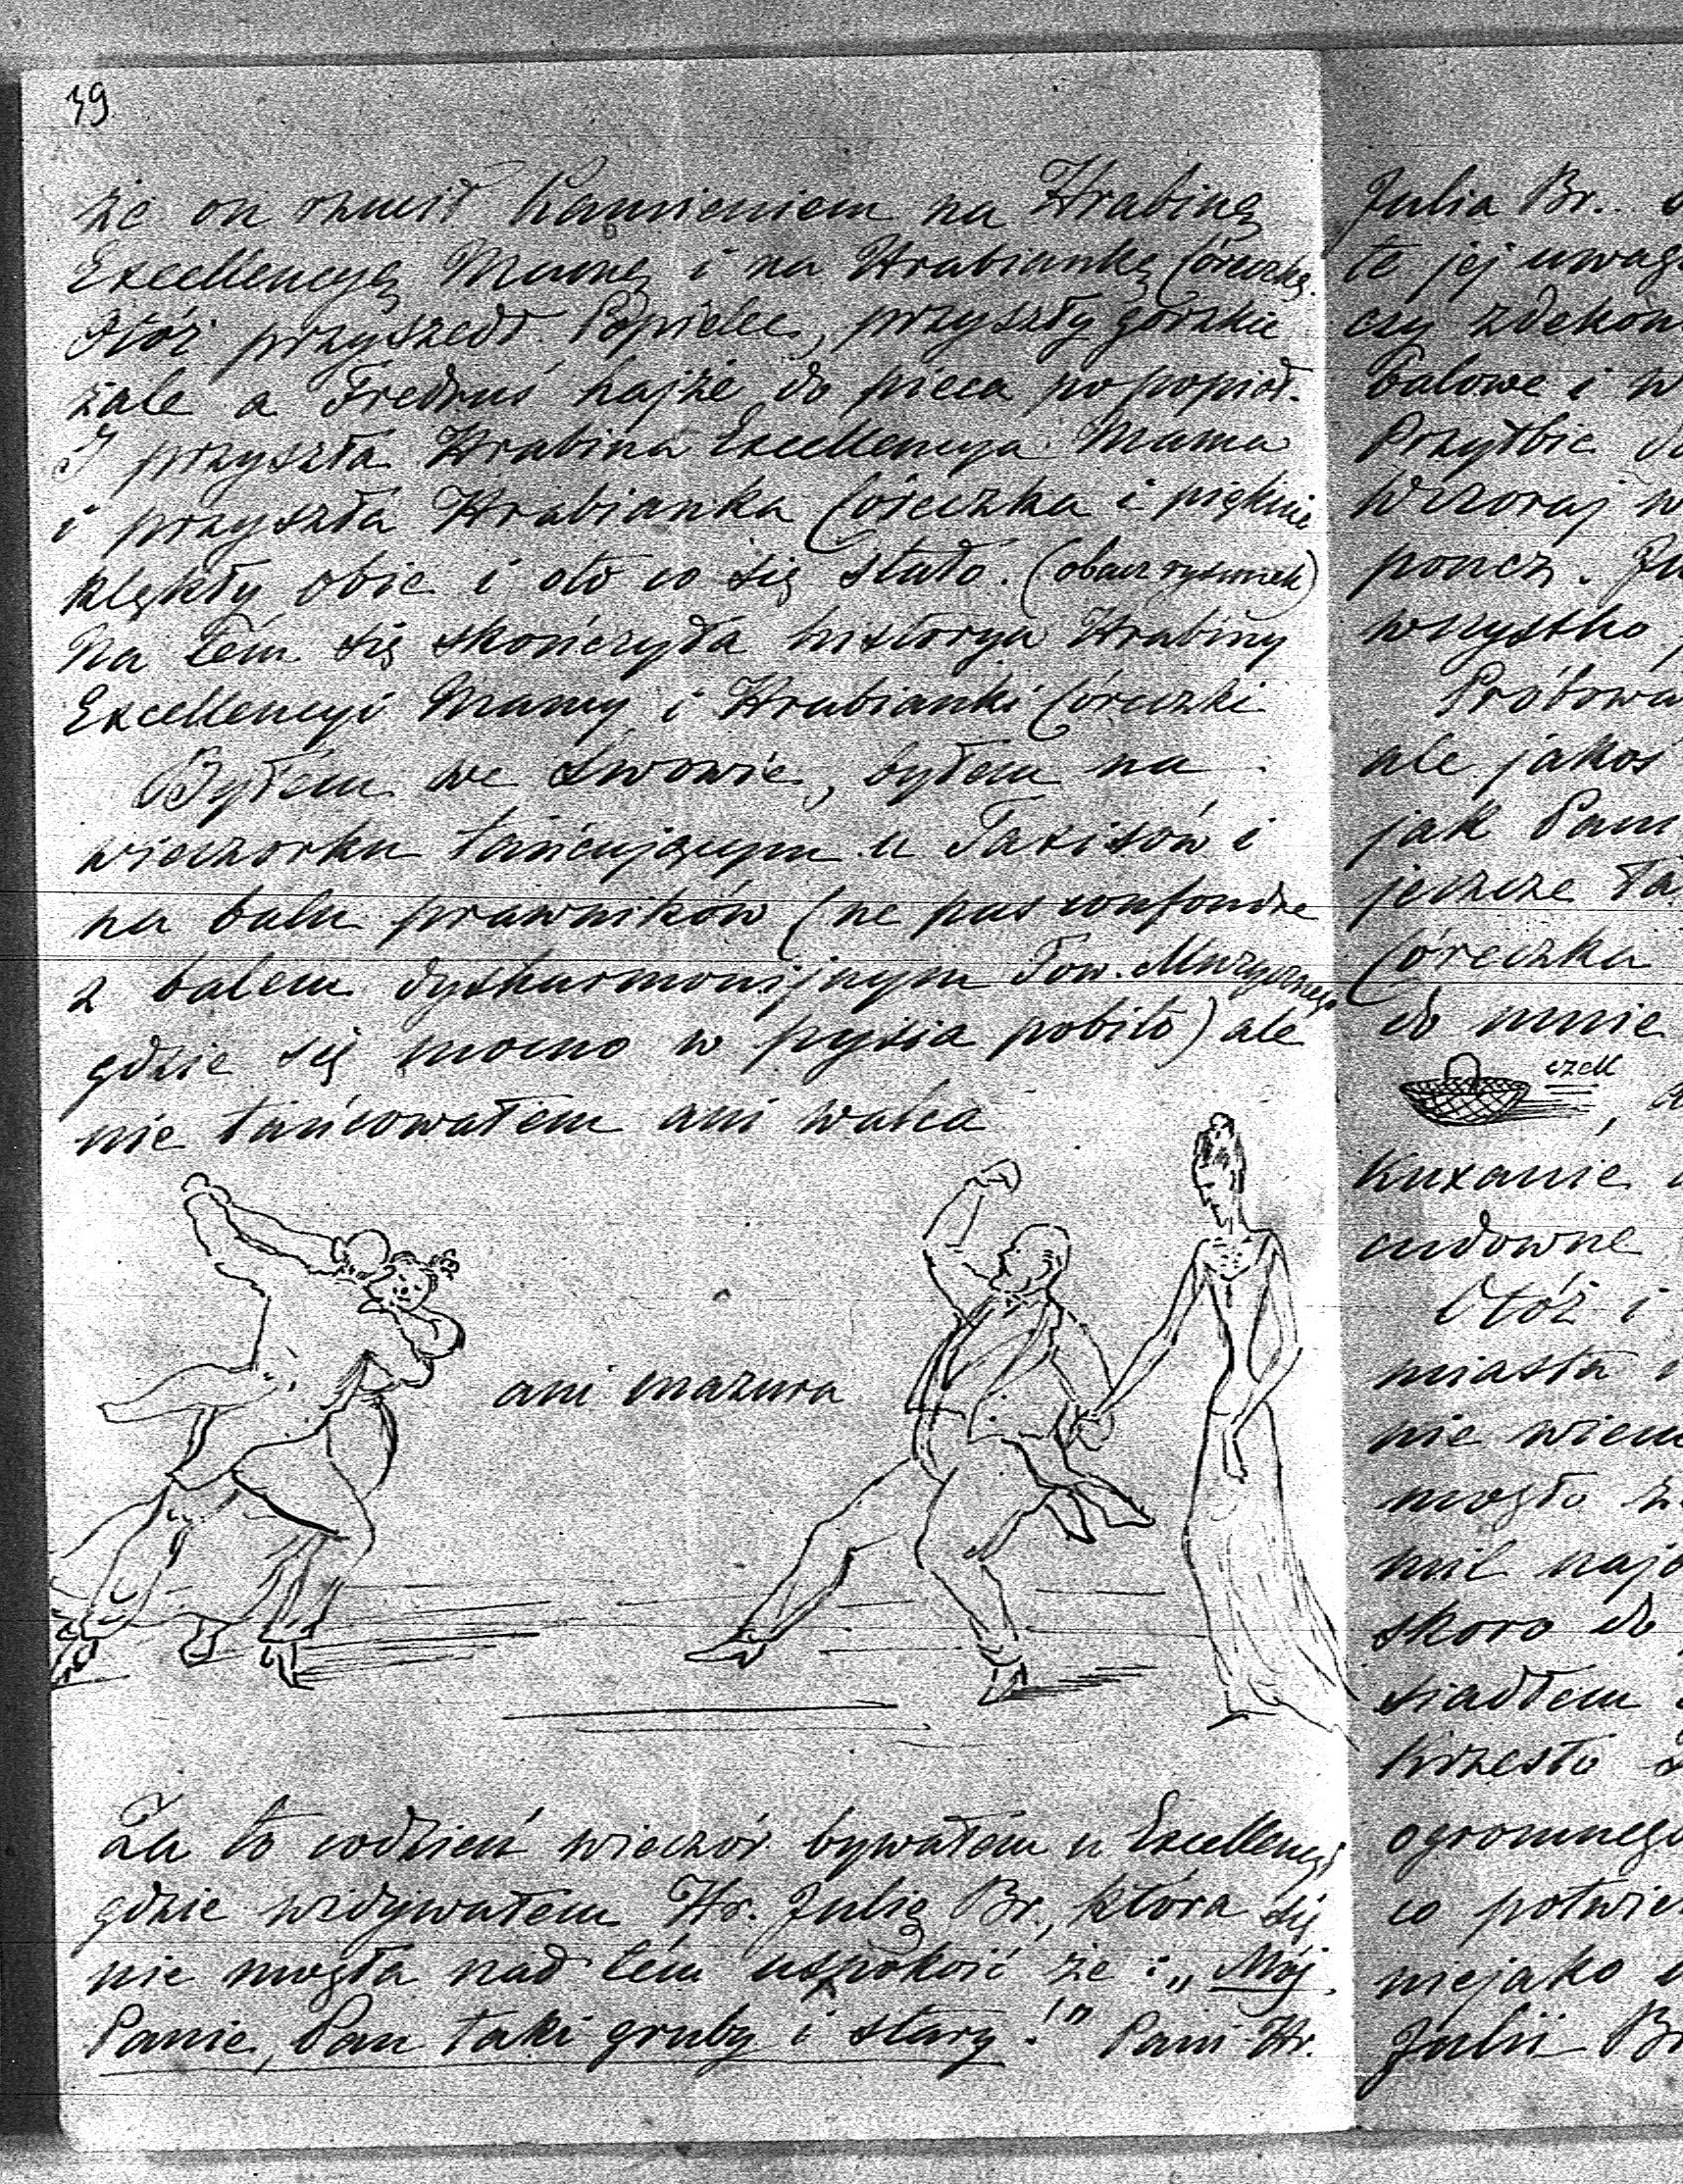 39
że on rzucił kamieniem na Hrabinę
Excellencyę Mamę i na Hrabiankę Córeczkę.
Otóż przyszedł Popielec, przyszły gorzkie
żale a Fredruś hajże do pieca po popiół.
I przyszła Hrabina Excellencya Mama
i przyszła Hrabianka Córeczka i pięknie
klękły obie i oto co się stało. (obacz rysunek)
Na tém się skończyła historya Hrabiny
Excellencyi Mamy i Hrabianki Córeczki
Byłem we Lwowie, byłem na
wieczorku tańcującym u Taxisów i
na balu prawników (ne pas confondre
z balem dysharmonijnym Tow. Muzycznego
gdzie się mocno w pysia pobito) ale
nie tańcowałem ani walca
ani mazura
Za to codzień wieczór bywałem u Excellencyi
gdzie widywałem Hr. Julię Br., która się
nie mogła nad tém uspokoić że: „Mój
Panie, Pan taki gruby i stary!" Pani Hr.
Julia Br.
te jej uwag
czy zdekon
balowe i w
Przyłbic do
Wczoraj w
poncz. Ju
wszystko
Próbowa
ale jakoś
jak Pani
jeszcze ta
Córeczka
do mnie
czek
Kuxanie
cudowne
Otóż i
miasta
nie wiem
mogło
mil najo
skoro do
siadłem
Krzesło
ogromnego
co potwie
niejako
Julii Br